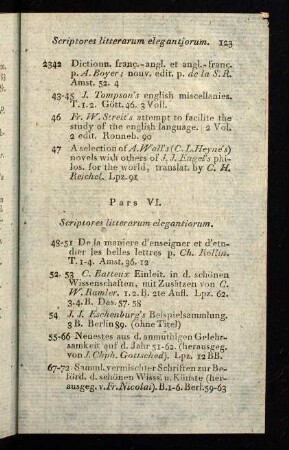 Scriptores litterarum elegantiorum. 123
2342 Dictionn. franç.-angl. et angl.-franç.
p. A. Boyer; nouv. edit. p. de la S. R.
Amst. 52. 4
43-45 J. Tompson's english miscellanies.
T. 1. 2. Gött. 46. 3 Voll.
46 Fr. W. Streit's attempt to facilite the
study of the english language. 2 Vol.
2 edit. Ronneb. 90
47 A selection of A. Wall's (C. L. Heyne's)
novels with others of J. J. Engel's phi-
los. for the world, translat. by C. H.
Reichel. Lpz. 91
Pars VI.
Scriptores litterarum elegantiorum.
48-51 De la maniere d'enseigner et d'etu-
dier les belles lettres p. Ch. Rollin.
T. 1-4. Amst. 36. 12
52. 53 C. Batteux Einleit. in d. schönen
Wissenschaften, mit Zusätzen von C.
W. Ramler. 1. 2. B. 2te Aufl. Lpz. 62.
3. 4. B. Das. 57. 58
54 J. J. Eschenburg's Beispielsammlung.
3 B. Berlin 89. (ohne Titel)
55-66 Neuestes aus d. anmüthigen Gelehr-
samkeit auf d. Jahr 51-62. (herausgeg.
von J. Chph. Gottsched). Lpz. 12 BB.
67-72 Samml. vermischter Schriften zur Be-
förd. d. schönen Wiss. u. Künste (her-
ausgeg. v. Fr. Nicolai). B. 1-6. Berl. 59-63